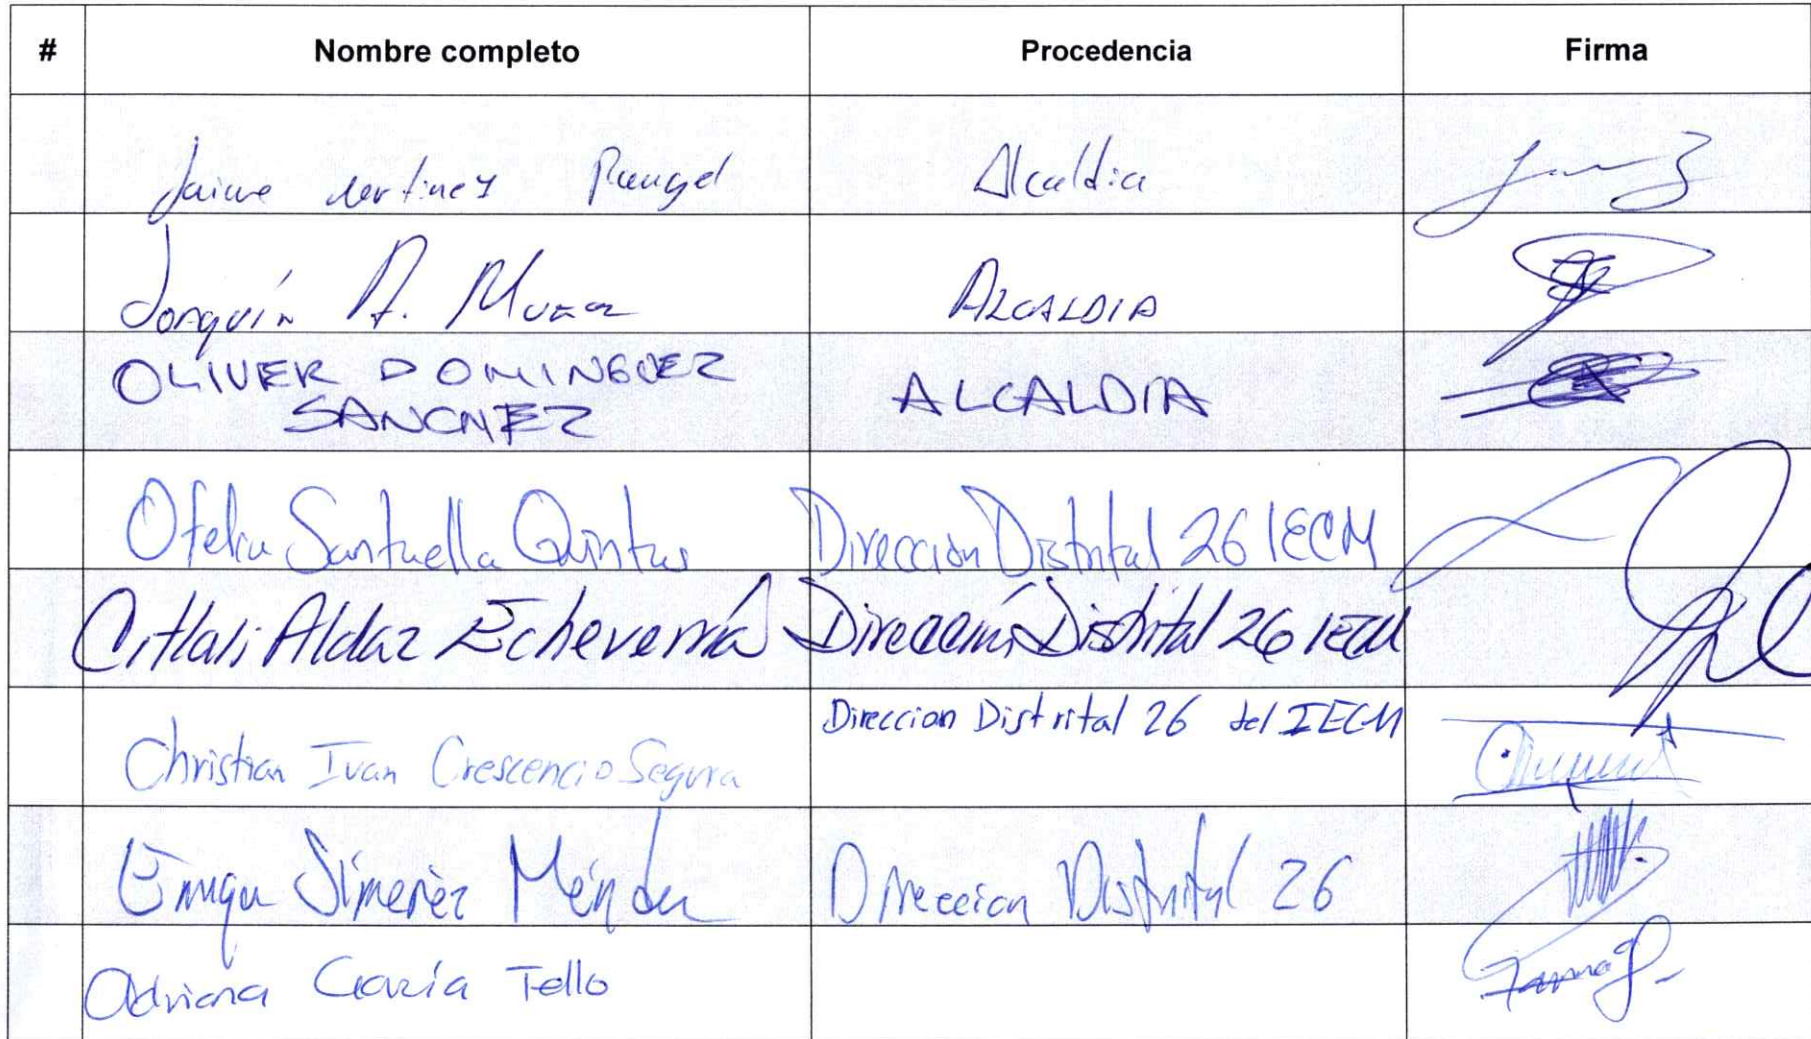 # Nombre completo Procedencia Firma
Jaime Martinez Rangel Alcaldia
Joaquín A. Muñoz ALCALDIA
OLIVER DOMINGUEZ
SANCHEZ ALCALDIA
Ofelia Santuella Quintas Dirección Distrital 26 IECM
Citlali Aldaz Echeverría Dirección Distrital 26 IECM
Direccion Distrital 26 del IECM
Christian Ivan Crescencio Segura
Jiménez Méndez Direccion Distrital 26
Adriana García Tello